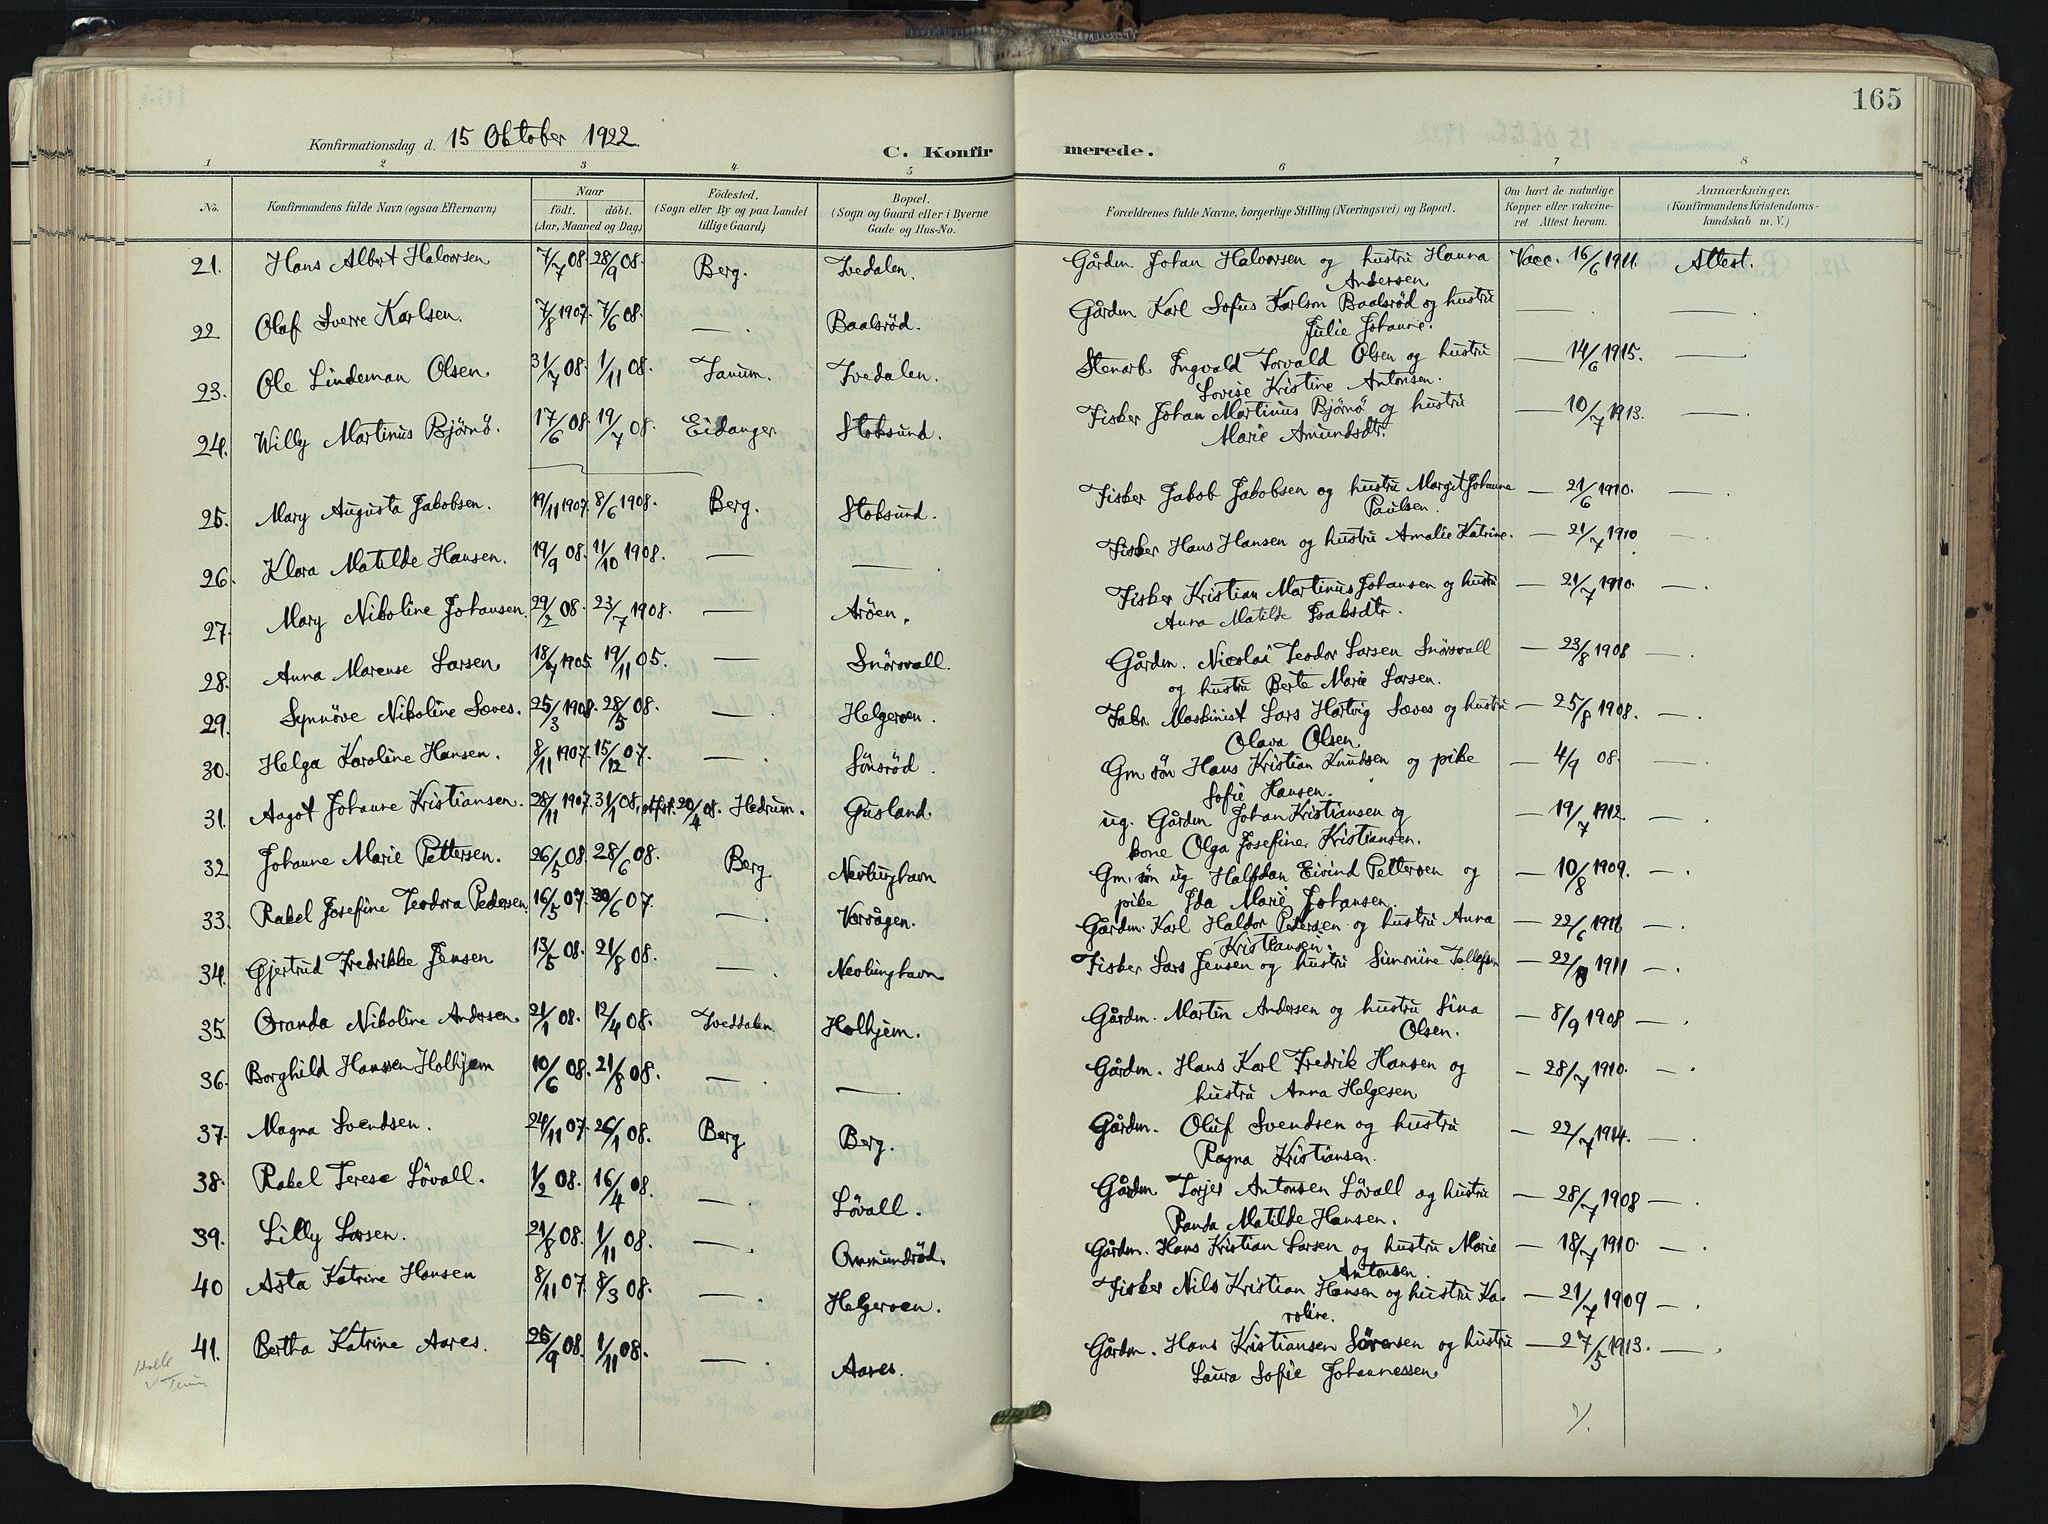 165
Konfirmationsdag d. 15 Oktober 1922.
C. Konfirmerede.
1 2 3 4. 5 6 7 8
No. Konfirmandens fulde Navn (ogsaa Efternavn) Naar födt. döbt. (Aar, Maaned og Dag) Födested. (Sogn eller By og paa Landet tillige Gaard) Bopæl. (Sogn og Gaard eller i Byerne Gade og Hus-No. Forældrenes fulde Navne, borgerlige Stilling (Næringsvei) og Bopæl. Om havt de naturlige Kopper eller vakcineret. Attest herom. Anmærkninger. (Konfirmandens Kristendomskundskab m. V.)
21. Hans Albert Halvorsen 7/7 08. 28/9 08. Berg. Tvedalen. Gårdm Johan Halvorsen og hustru Hanna Vacc. 16/6 1911. Attest.
Andersen
22 Olaf Sverre Karlsen. 7/8 1907. 7/6 08. — . Baalsrød. Gårdm Karl Sofus Karlson Baalsrød og hustru — . — .
Julie Johanne.
23. Ole Lindeman Olsen. 31/7 08. 1/11 08. Tanum. Tvedalen. Stenarb Ingvald Torvald Olsen og hustru — 14/6 1915. —
Lovise Kristine Antonsen.
24. Willy Martinus Bjørnø. 17/6 08. 19/7 08. Eidanger Stoksund. Fisker Johan Martinus Bjørnø og hustru — 10/7 1913. — .
Marie Amundsdtr.
25. Mary Augusta Jakobsen. 19/11 1907. 8/6 1908. Berg. Stoksund. Fisker Jakob Jakobsen og hustru Margit Johanne — 21/6 1910. — .
Paulsen.
26. Klara Matilde Hansen. 19/9 08. 11/10 1908. — — . Fisker Hans Hansen og hustru Amalie Katrine. — 21/7 1910 — .
27. Mary Nikoline Johansen. 29/2 08. 23/7 1908. — Arøen. Fisker Kristian Martinus Johansen og hustru — 21/7 1910. — .
Anna Matilde Isaksdtr.
28. Anna Marense Larsen 18/7 1905. 19/11 05. — Snørsvall. Gårdm. Nicolai Teodor Larsen Snørsvall — 23/8 1908 — .
og hustru Berte Marie Larsen.
29. Synnøve Nikoline Sæves. 25/3 1908. 28/5 08. — . Helgeroen. Fabr. Maskinist Lars Hartvig Sæves og hustru — 25/8 1908. — .
Olava Olsen
30. Helga Karoline Hansen. 8/11 1907. 15/12 07. — . Sønsrød. Gm søn Hans Kristian Knudsen og pike — 4/9 08. — .
Sofie Hansen.
31. Aagot Johanne Kristiansen. 28/11 1907. 31/1 08, 20/4 08. Hedrum. Gusland. ug. Gårdm Johan Kristiansen og — 19/7 1912. — .
kone Olga Josefine Kristiansen.
32 Johanne Marie Pettersen. 26/5 08. 28/6 08. Berg Nevlunghavn Gm. søn ug Halfdan Eivind Pettersen og — 10/8 1909. — .
pike Ida Marie Johansen.
33. Rakel Josefine Teodora Pedersen. 16/5 07. 30/6 07. — . Vorvågen. Gårdm. Karl Haldor Petersen og hustru Anna — 22/6 1911 — .
Kristiansen.
34. Gjertrud Fredrikke Jensen 13/5 08. 21/8 08. — . Nevlunghavn Fisker Lars Jensen og hustru Simonine Tollefsen — 1911 — .
35. Oranda Nikoline Andersen. 21/1 08. 12/4 08. Tveddalen Holhjem. Gårdm. Martin Andersen og hustru Lina — 8/9 1908 — .
Olsen.
36. Borghild Hanssen Holhjem 10/6 08. 21/8 08. — . — Gårdm. Hans Karl Fredrik Hansen og — 28/7 1910. — .
hustru Anna Helgesen
37. Magna Svendsen. 24/11 07. 26/1 08. Berg Berg. Gårdm. Oluf Svendsen og hustru — 22/7 1914. — .
Ragna Kristiansen.
38. Rakel Terese Løvall. 1/2 08. 16/4 08. — . Løvall. Gårdm Torjer Antonsen Løvall og hustru — 28/7 1908 — .
Randa Matilde Hansen.
39. Lilly Larsen. 21/8 08. 1/11 08. — . Ommundrød. Gårdm. Hans Kristian Larsen og hustru Marie — 18/7 1910. — .
Antonsen.
40 Asta Katrine Hansen 8/11 07. 8/3 08. — . Helgeroen. Fisker Nils Kristian Hansen og hustru Ka- — 21/7 1909 — .
roline.
41. Bertha Katrine Aares. 25/9 08. 1/11 08. — . Aares. Gårdm. Hans Kristiansen Sørensen og hustru — 27/5 1913. — .
Laura Sofie Johannessen.